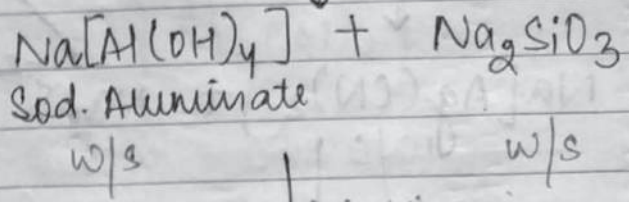 Na[Al(OH)4] + Na2SiO3
Sod. Aluminate
W/S W/S